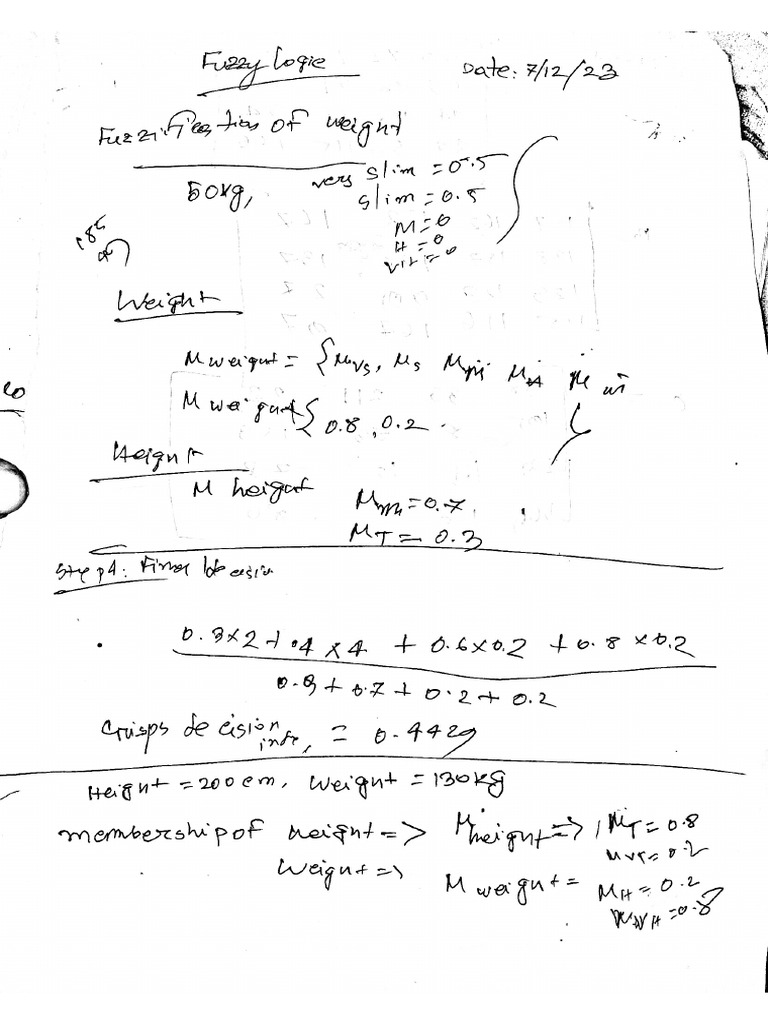 Fuzzy Logic
Date: 7/12/23
Fuzzification of weight
50kg, very slim = 0.5
slim = 0.5
M = 0
H = 0
VH = 0
Weight
M weight = { Mvs, Ms
M weight { 0.8, 0.2 }
Height
M height
Mm = 0.7
MT = 0.3
Step 4: Final Decision
0.3x2 + .4 x 4 + 0.6x0.2 + 0.8 x0.2
+ 0.7 + 0.2 + 0.2
Crisps decision = 0.4429
Height = 200 cm, Weight = 130kg
membership of height => M height => MT = 0.8
MVT = 0.2
Weight => M weight = MH = 0.2
MVH = 0.8